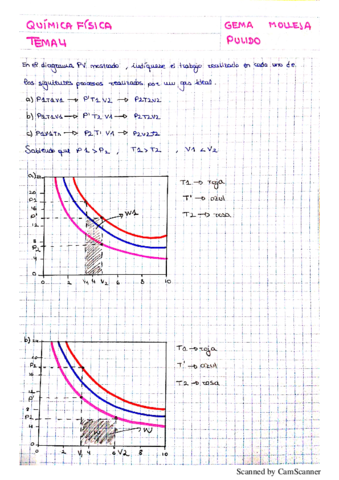 QUÍMICA FÍSICA
GEMA MOLLEJA
TEMA 4
PULIDO
En el diagrama PV mostrado, indíquese el trabajo realizado en cada uno de
los siguientes procesos realizados por un gas ideal.
a) P1T1V1 → P'T1V2 → P2T2V2
b) P1T1V1 → P'T2V1 → P2T2V2
c) P1V1T1 → P2T'V1 → P2V2T2
Sabiendo que P1 > P2, T1 > T2, V1 < V2
a)
T1 → roja
T' → azul
T2 → rosa
20
P1
16
P'
12
8
P2
4
0
W1
0 2 V1 4 V2 6 8 10
b)
T1 → roja
T' → azul
T2 → rosa
20
P1
16
P'
8
P2
4
0
W
0 2 V1 4 6 V2 8 10
Scanned by CamScanner